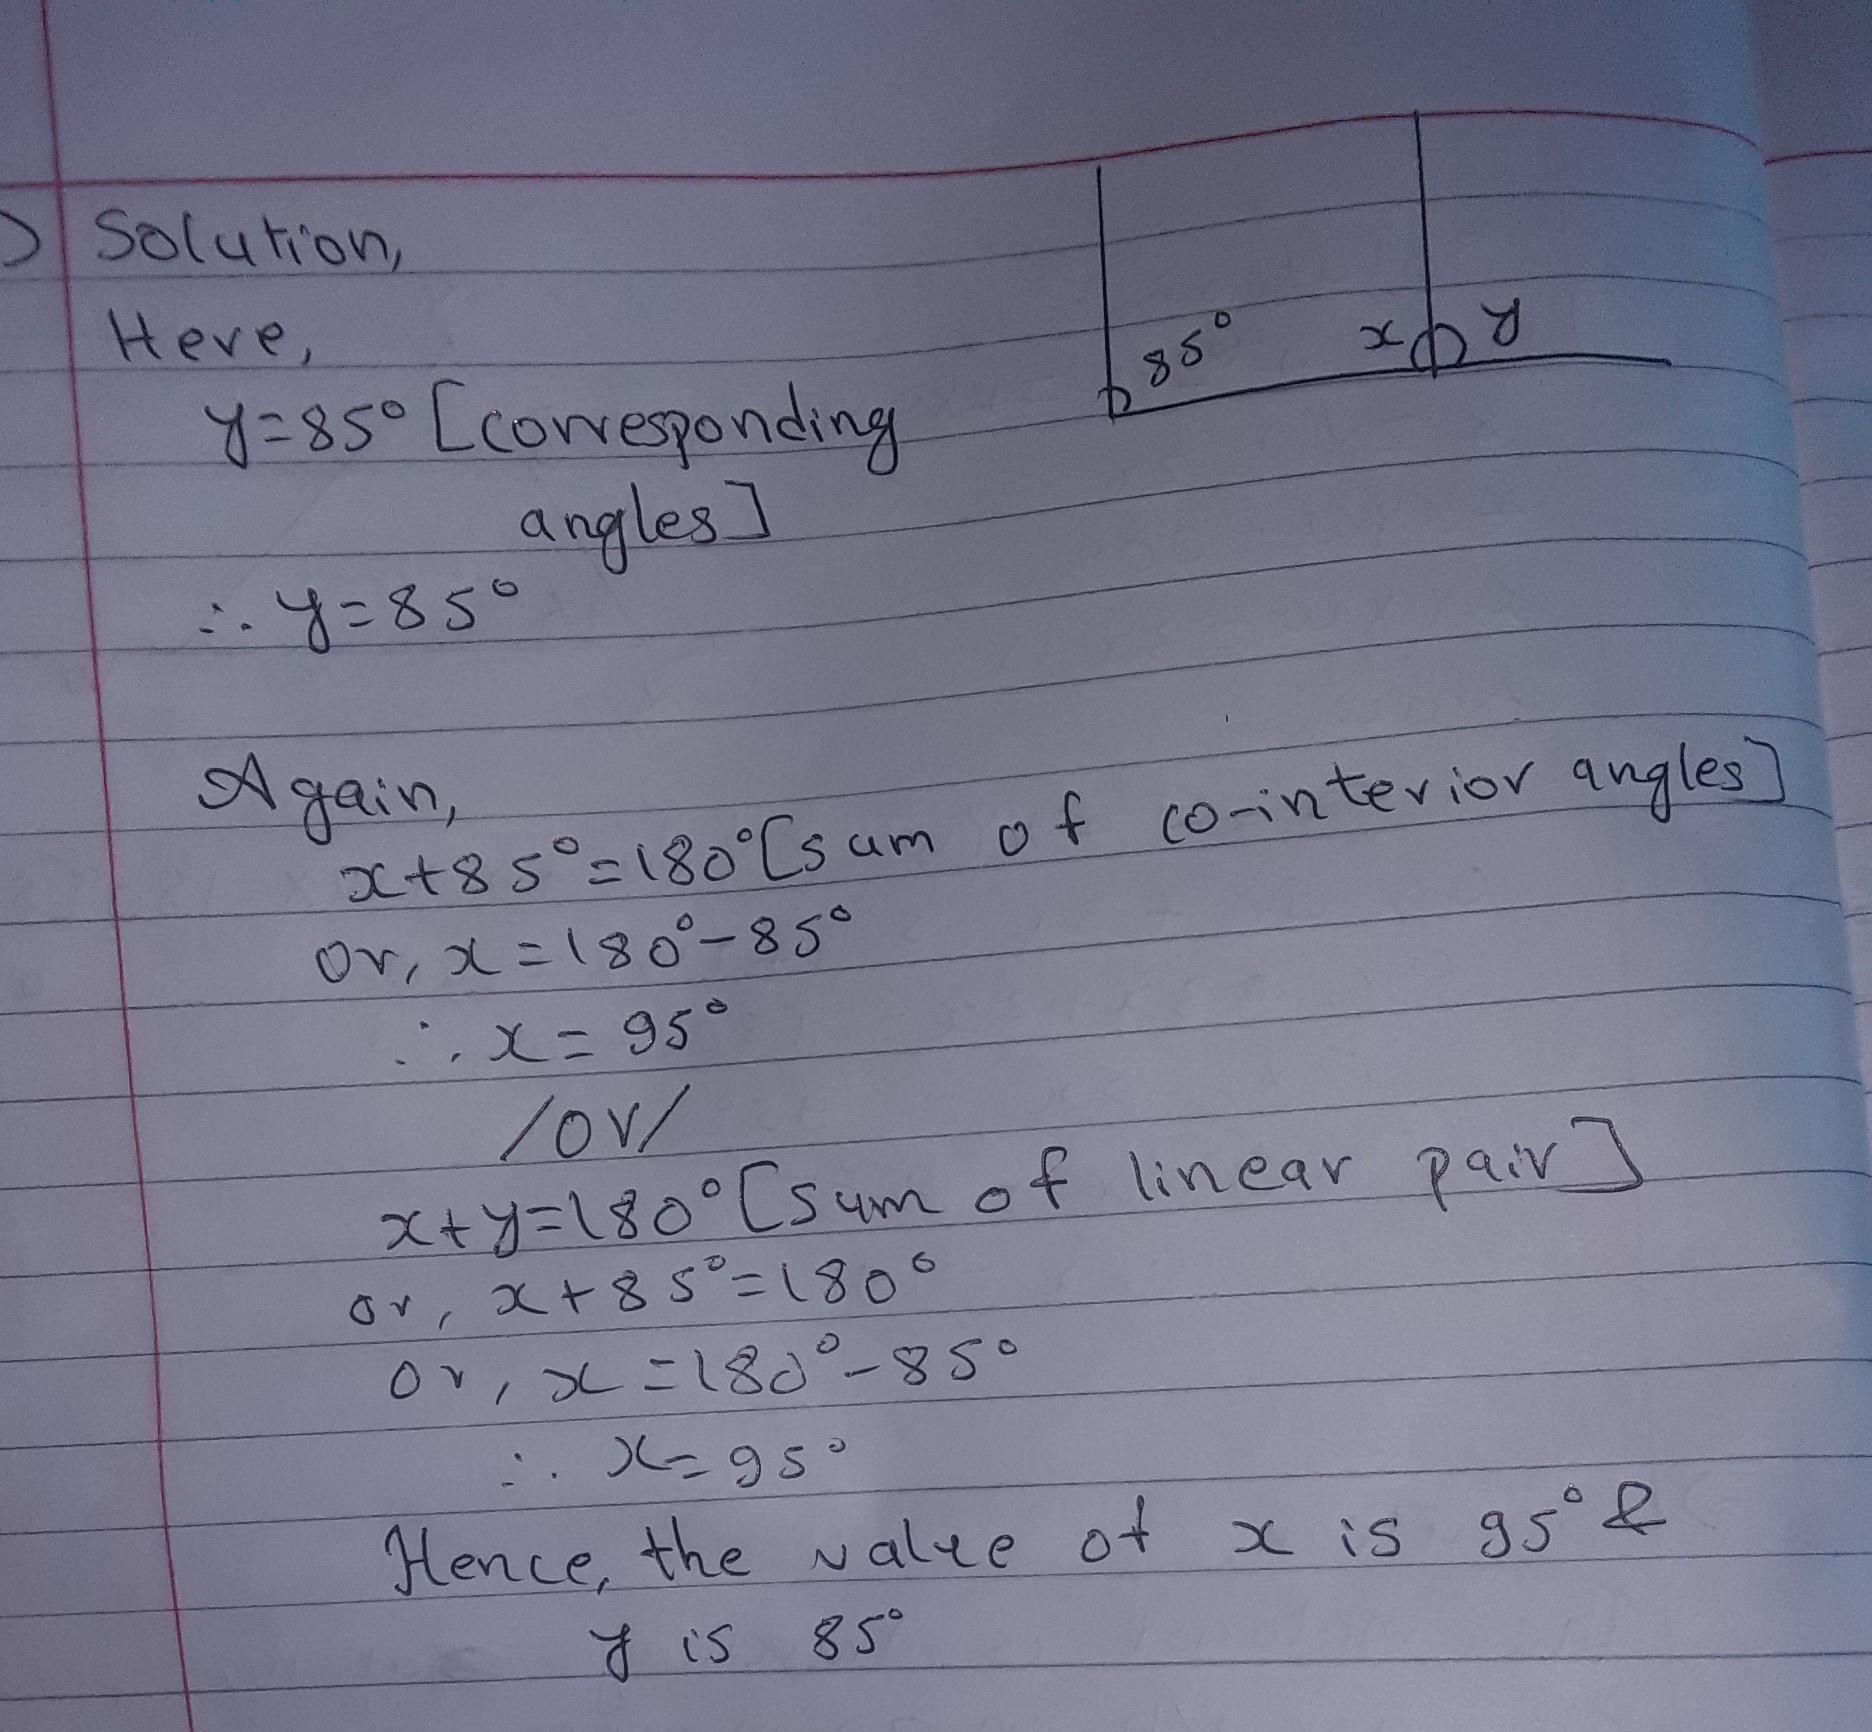 Solution,
Here,
85° x y
y=85° [corresponding
angles]
∴ y=85°
Again,
x+85°=180°[sum of co-interior angles]
or, x=180°-85°
∴ x=95°
/or/
x+y=180°[sum of linear pair]
or, x+85°=180°
or, x=180°-85°
∴ x=95°
Hence, the value of x is 95° &
y is 85°